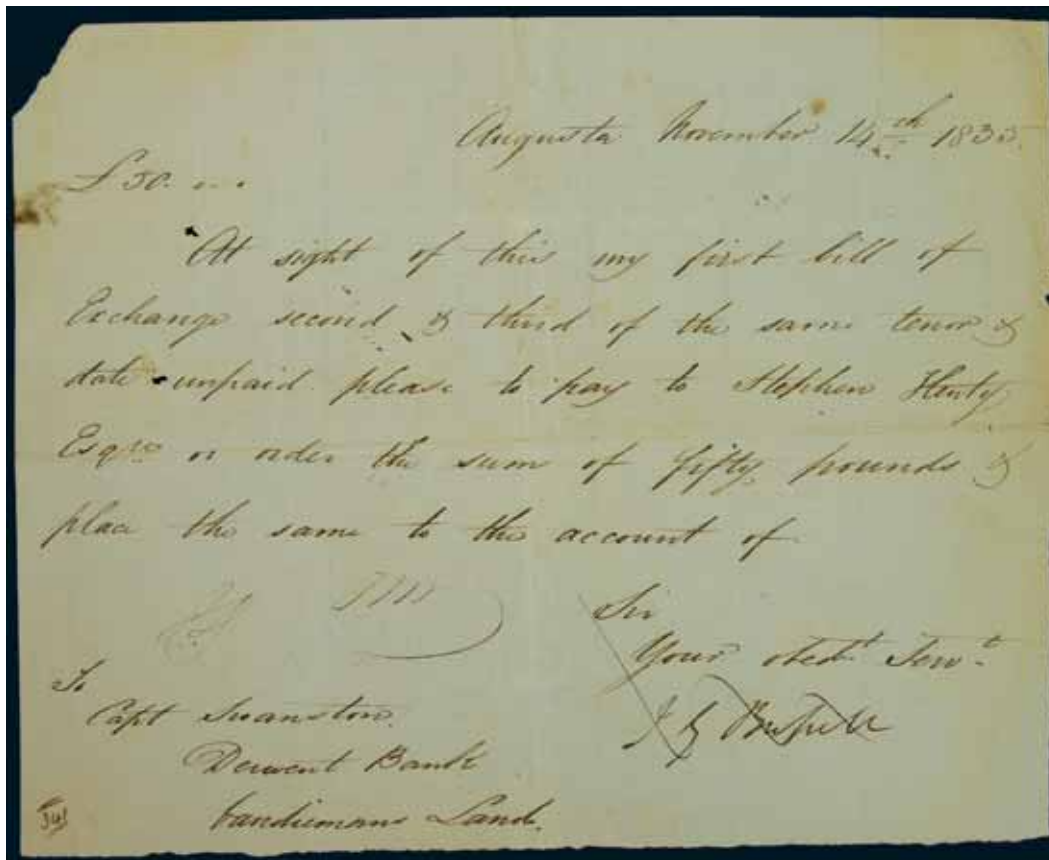 Augusta November 14th 1833.
£50. " .
At sight of this my first bill of
Exchange second & third of the same tenor &
date unpaid please to pay to Stephen Henty
Esqre or order the sum of fifty pounds &
place the same to the account of
Sir
Your obedt. Servt.
J G Bussell
To
Capt Swanston.
Derwent Bank
Vandiemans Land.